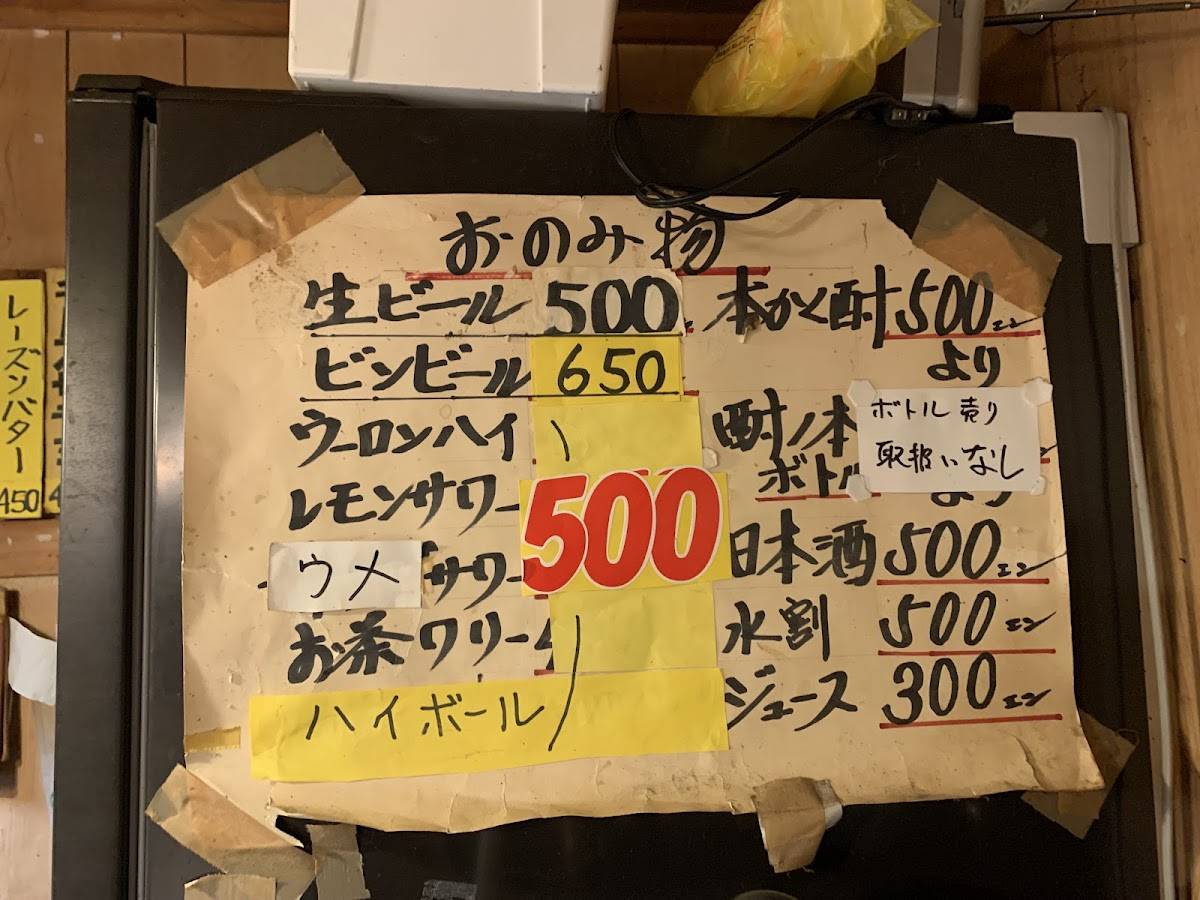 おのみ物
生ビール 500
ビンビール 650
ウーロンハイ
レモンサワー
ウメ サワー
お茶ワリー
ハイボール
500
本かく酎 500エン
より
酎ノ本
ボトル
より
ボトル売り
取扱いなし
日本酒 500エン
水割 500エン
ジュース 300エン
レーズンバター
450